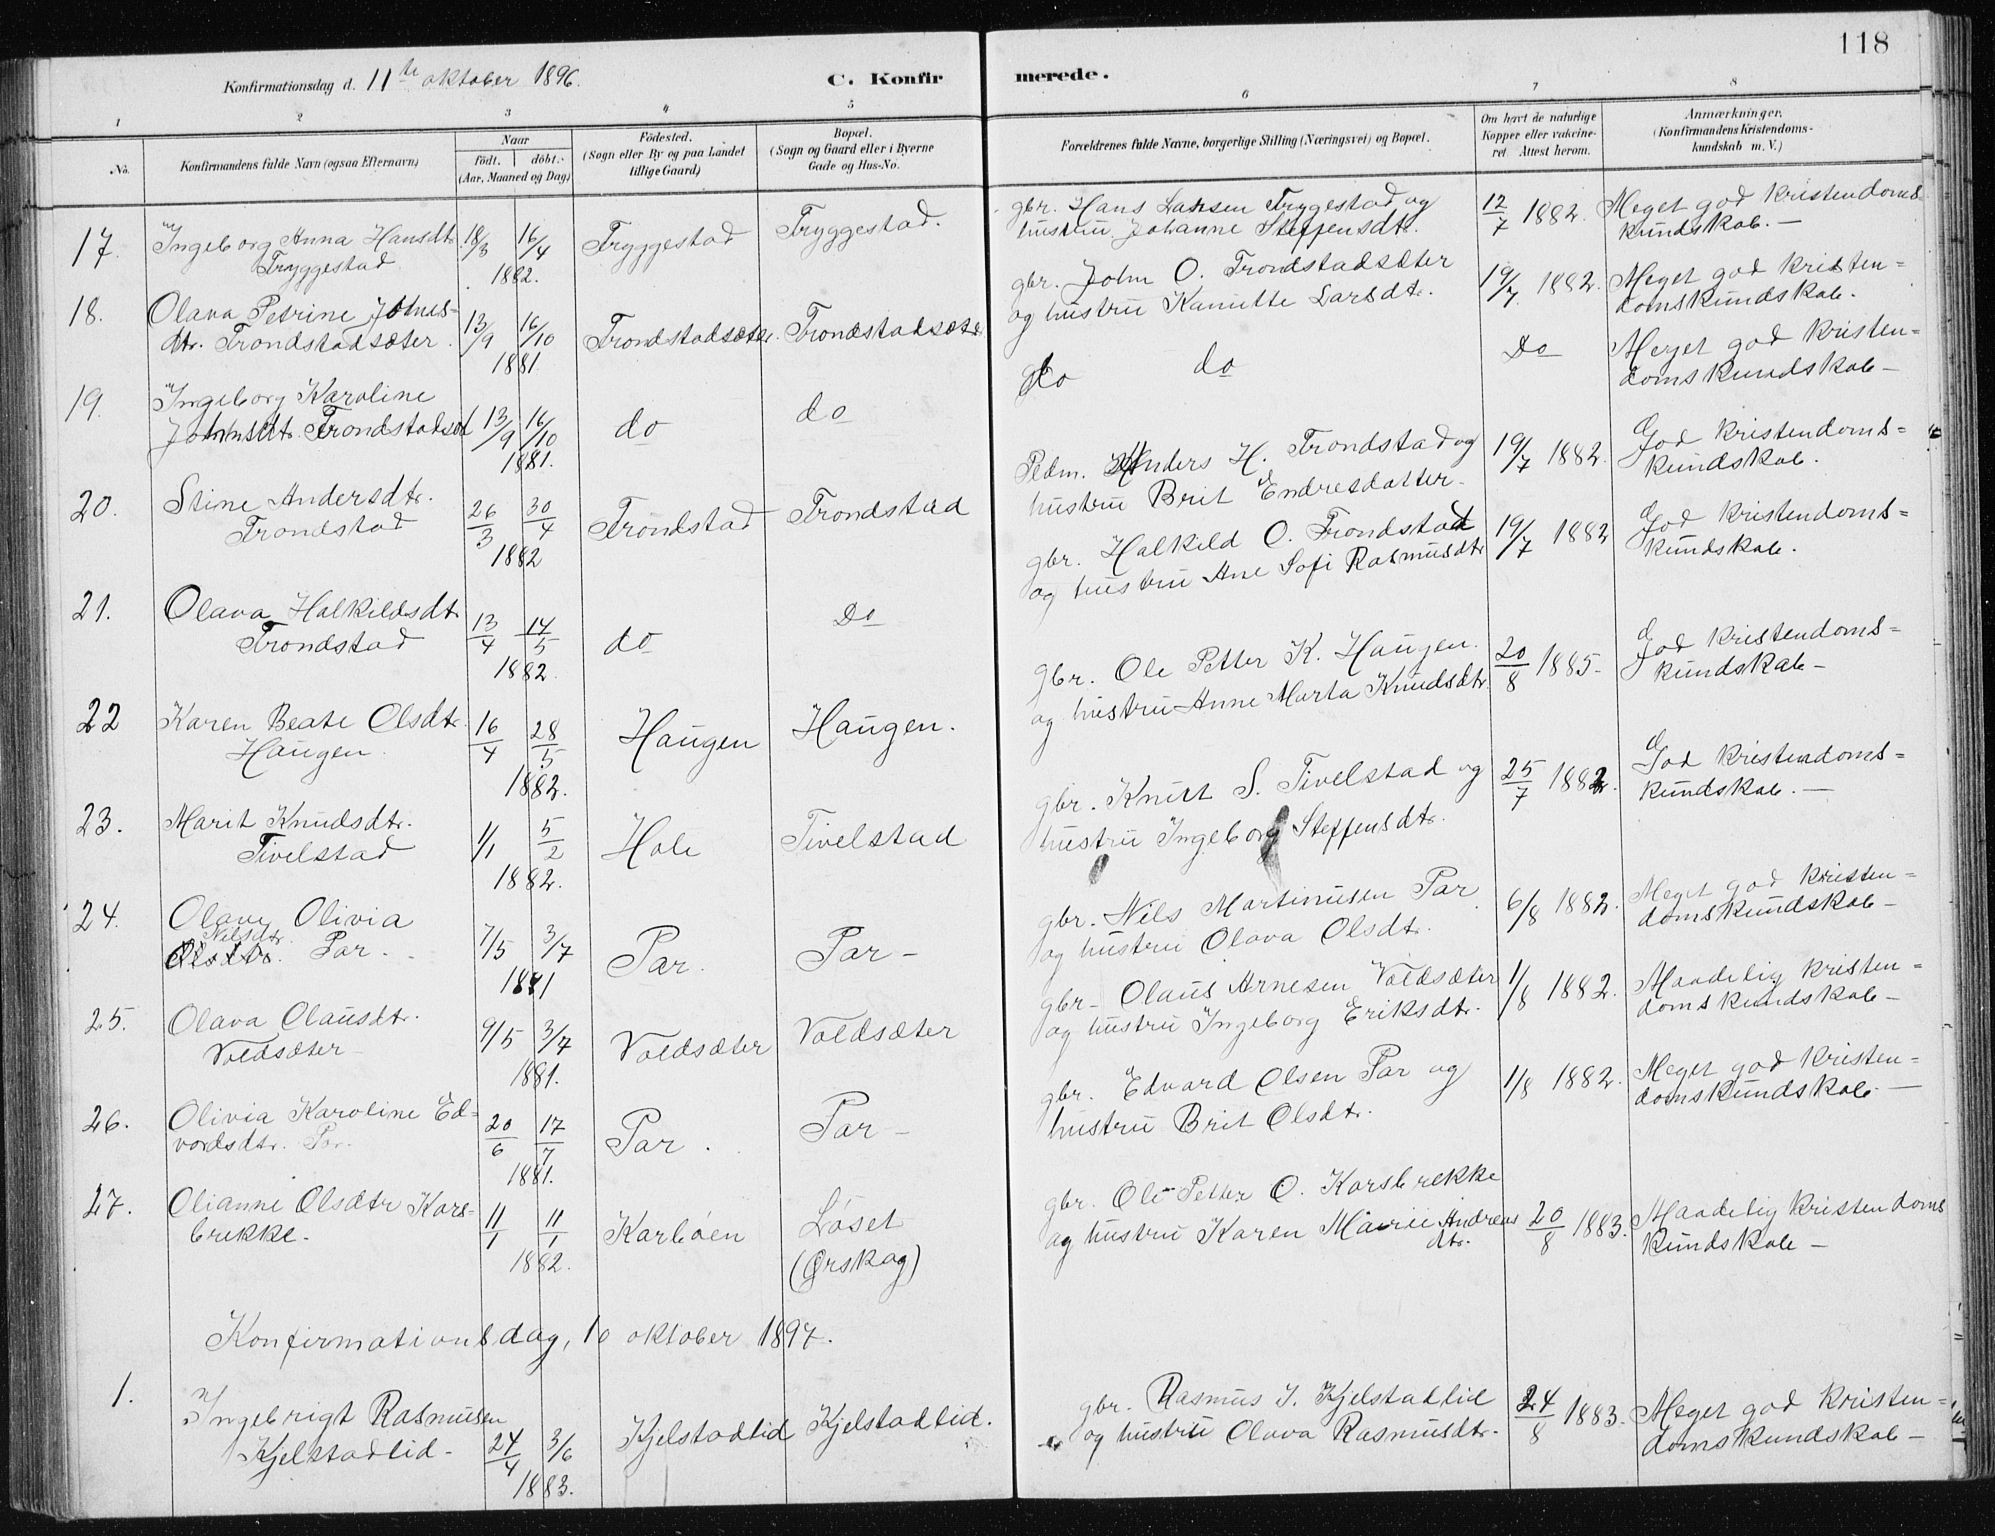 118
Konfirmationsdag d. 11te oktober 1896.
C. Konfirmerede.
1 2 3 4 5 6 7 8
No. Konfirmandens fulde Navn (ogsaa Efternavn) Naar født. døbt. (Aar, Maaned og Dag) Fødested. (Sogn eller By og paa Landet tillige Gaard) Bopæl. (Sogn og Gaard eller i Byerne Gade og Hus-No. Forældrenes fulde Navne, borgerlige Stilling (Næringsvei) og Bopæl. Om havt de naturlige Kopper eller vakcineret. Attest herom. Anmærkninger, (Konfirmandens Kristendomskundskab m. V.)
17. Ingeborg Anna Hansdtr. 18/3 16/4 Tryggestad Tryggestad. gbr. Hans Larsen Tryggestad og 12/7 1882. Meget god kristendoms
Tryggestad 1882. hustru Johanne Steffensdtr. kundskab. —
18. Olava Petrine Johns- 13/9 16/10 Trondstadsæter. Trondstadsæter gbr. John O. Trondstadsæter 19/7. 1882. Meget god kristen=
dtr. Trondstadsæter. 1881 og hustru Kanutte Larsdtr. domskundskab.
19. Ingeborg Karoline 13/9 16/10 do do do do Do Meget god kristen=
Johnsdtr. Trondstadsæt 1881. domskundskab —
20. Stine Andersdtr. 26/3 30/4 Trondstad Trondstad Pedm. Anders H. Trondstad og 19/7 1882. God kristendoms=
Trondstad 1882 hustru Brit Endresdatter. kundskab.
21. Olava Halkildsdtr. 13/4 14/5 do Do gbr. Halkild O. Trondstad 19/7 1882 God kristendoms=
Trondstad 1882. og hustru Ane Sofi Rasmusdtr. kundskab.
22 Karen Beate Olsdtr. 16/4 28/5 Haugen Haugen. gbr. Ole Petter K. Haugen. 20/8 1885. God kristendoms=
Haugen. 1882. og hustru Anne Marta Knudsdtr. kundskab —
23. Marit Knudsdtr. 1/1 5/2 Hole Tivelstad gbr. Knut S. Tivelstad og 25/7 1882. God kristendoms=
Tivelstad 1882. hustru Ingeborg Steffensdtr. kundskab. —
24. Olave Olivia 7/5 3/7 Par. Par — gbr. Nils Martinusen Par 6/8 1882. Meget god kristen=
Nilsdtr.
Olsdtr. Par. 1881 og hustru Olava Olsdtr. domskundskab —
25. Olava Olausdtr. 9/5 3/7 Voldsæter Voldsæter gbr. Olaus Arnesen Voldsæter 1/8 1882. Maadelig kristen=
Voldsæter 1881. og hustru Ingeborg Eriksdtr. domskundskab —
26. Olivia Karoline Ed= 20/6 17/7 Par. Par — gbr. Edvard Olsen Par og 1/8 1882. Meget god kristen=
vardsdtr. Par. 1881. hustru Brit Olsdtr. domskundskab —
27. Olianne Olsdtr Kors= 11/1 11/1 Karbøen Løset gbr. Ole Petter O. Korsbrekke 20/8 1883. Maadelig kristendoms
brekke. 1882. (Ørskog) og hustru Karen Marie Andreas dtr. kundskab —
Konfirmationsdag, 10 oktober 1897.
1. Ingebrigt Rasmusen 24/4 3/6 Kjelstadlid Kjelstadlid. gbr. Rasmus I. Kjelstadlid 24/8 1883. Meget god kristen=
Kjelstadlid. 1883. og hustru Olava Rasmusdtr. domskundskab —